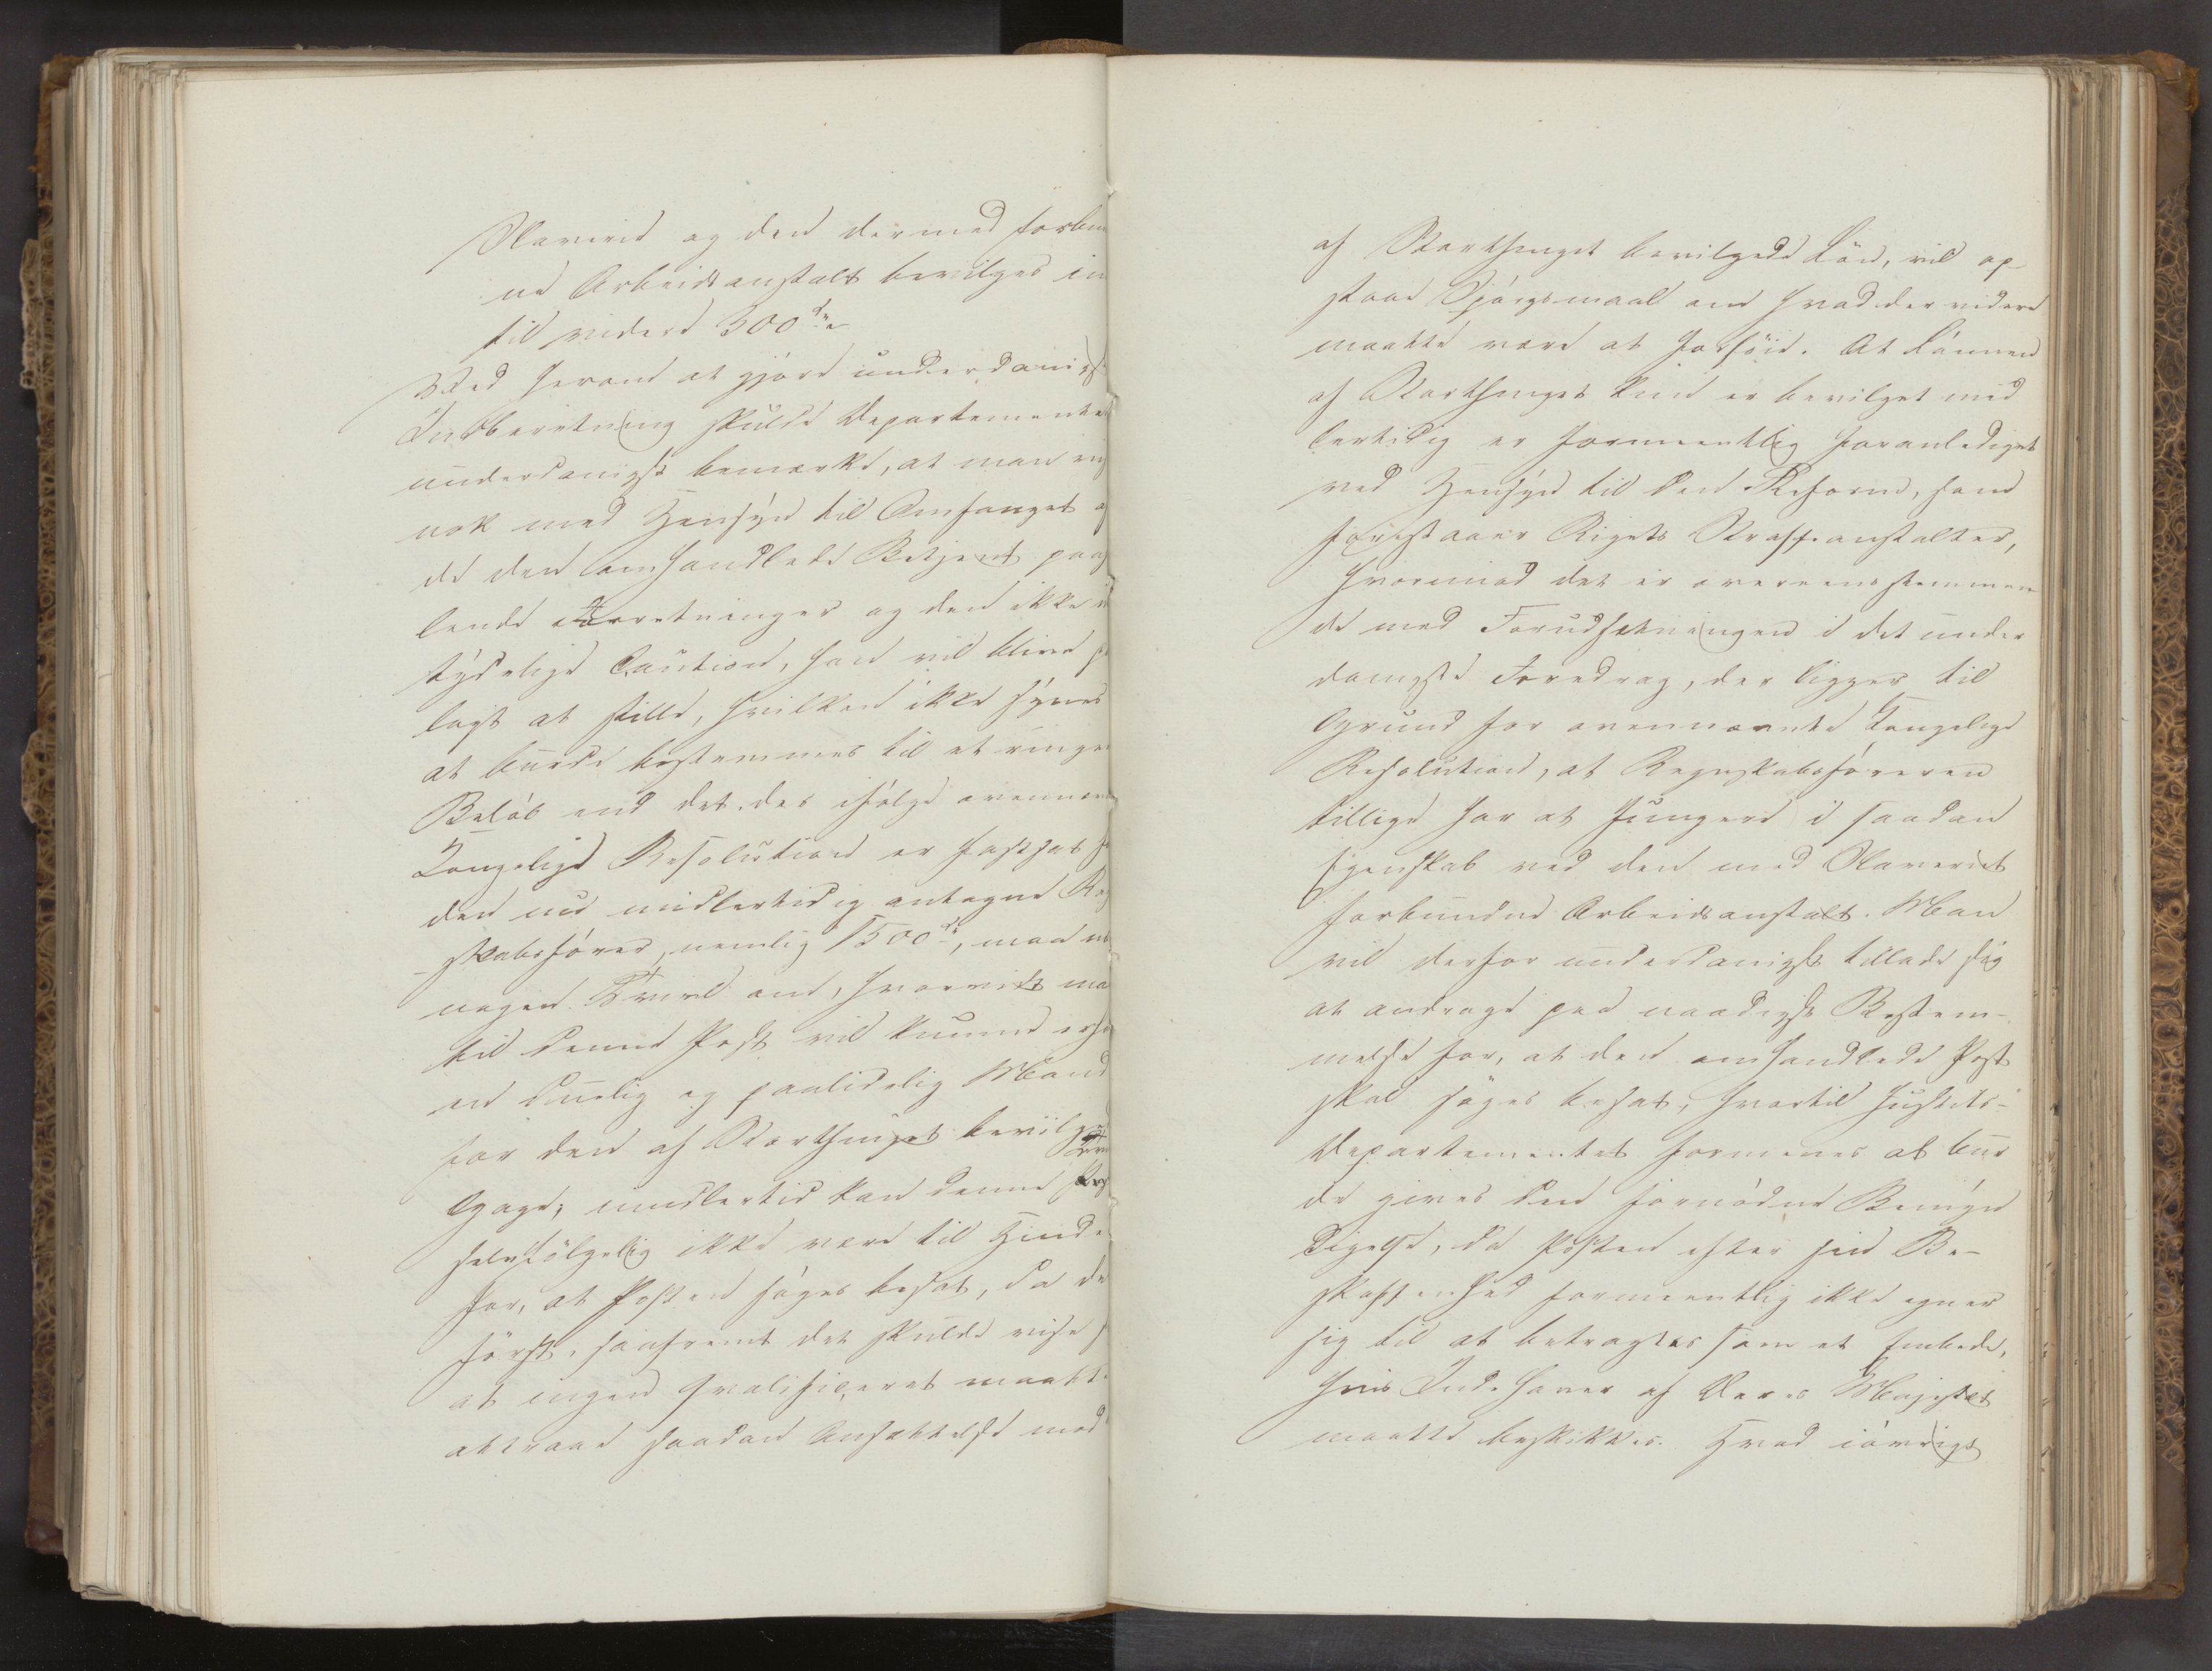 Slaveriet og den dermed forbun
ne Arbeidsanstalt bevilges in
til videre 300 
Ved herom at gjøre underdanigst
Indberetning skulde Departementet
underdanigst bemærke, at man vis
nok med Hensyn til Omfanget af
de den omhandlede Betjent paah
lende Forretninger og den ikke ub
tydelige Caution, han vil blive p
lagt at stille, hvilken ikke synes
at burde bestemmes til et ringer
Beløb end det, der ifølge ovennævn
Kongelige Resolution er fastsat f
den nu midlertidig antagne Reg
skabsfører, nemlig 1500, maa n
nogen Tvivl om, hvorvidt ma
til denne Post vil kunne erho
en duelig og paalidelig Mand
for den af Storthinget bevilgede
Gage; imidlertid kan denne
selvfølgelig ikke være til Hinde
for, at Posten søges besat, da de
først, saafremt det skulde vise s
at ingen qvalificeret maatte
attraae saadan Ansættelse mod
af Storthinget bevilgede Løn, vil op
staae Spørgsmaal om hvad der videre
maatte være at forføie. At Lønnen
af Storthinget kun er bevilget mid
lertidig er formeentlig foranlediget
ved Hensyn til den Reform, som
forestaaer Rigets Straffeanstalter,
hvorimod det er overeensstemmen
de med Forudsætningen i det under
danigste Foredrag, der ligger til
Grund for ovennævnte Kongelige
Resolution, at Regnskabsføreren
tillige har at fungere i saadan
Egenskab ved den med Slaveriet
forbundne Arbeidsanstalt. Man
vil derfor underdanigst tillade sig
at andrage paa naadigst Bestem-
melse for, at den omhandlede Post
skal søges besat, hvortil Justits-
Departementet formenes at bur
de gives den fornødne Bemyn
digelse, da Posten efter sin Be-
skaffenhed formeentlig ikke egner
sig til at betragtes som et Embede,
hvis Indehaver af Deres Majestæt
maatte beskikkes. Hvad iøvrigt